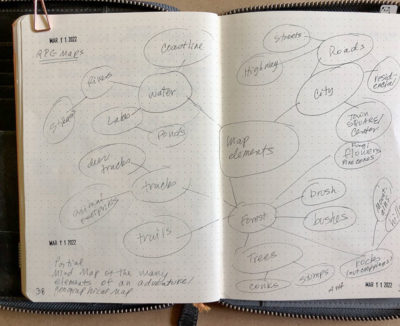 MAR 1 1 2022
RPG Maps
coastline
Rivers
water
Lakes
Ponds
deer
tracks
tracks
animal
footprints
trails
MAR 1 1 2022
Partial
Mind Map of the many
elements of an adventure/
geographical map
38
MAR 1 1 2022
Streets
Roads
Highway
City
resid-
ential
TOWN
SQUARE/
Center
flowers
Map
elements
Forest
brush
bushes
Trees
stumps
rocks
MAR 1 1 2022